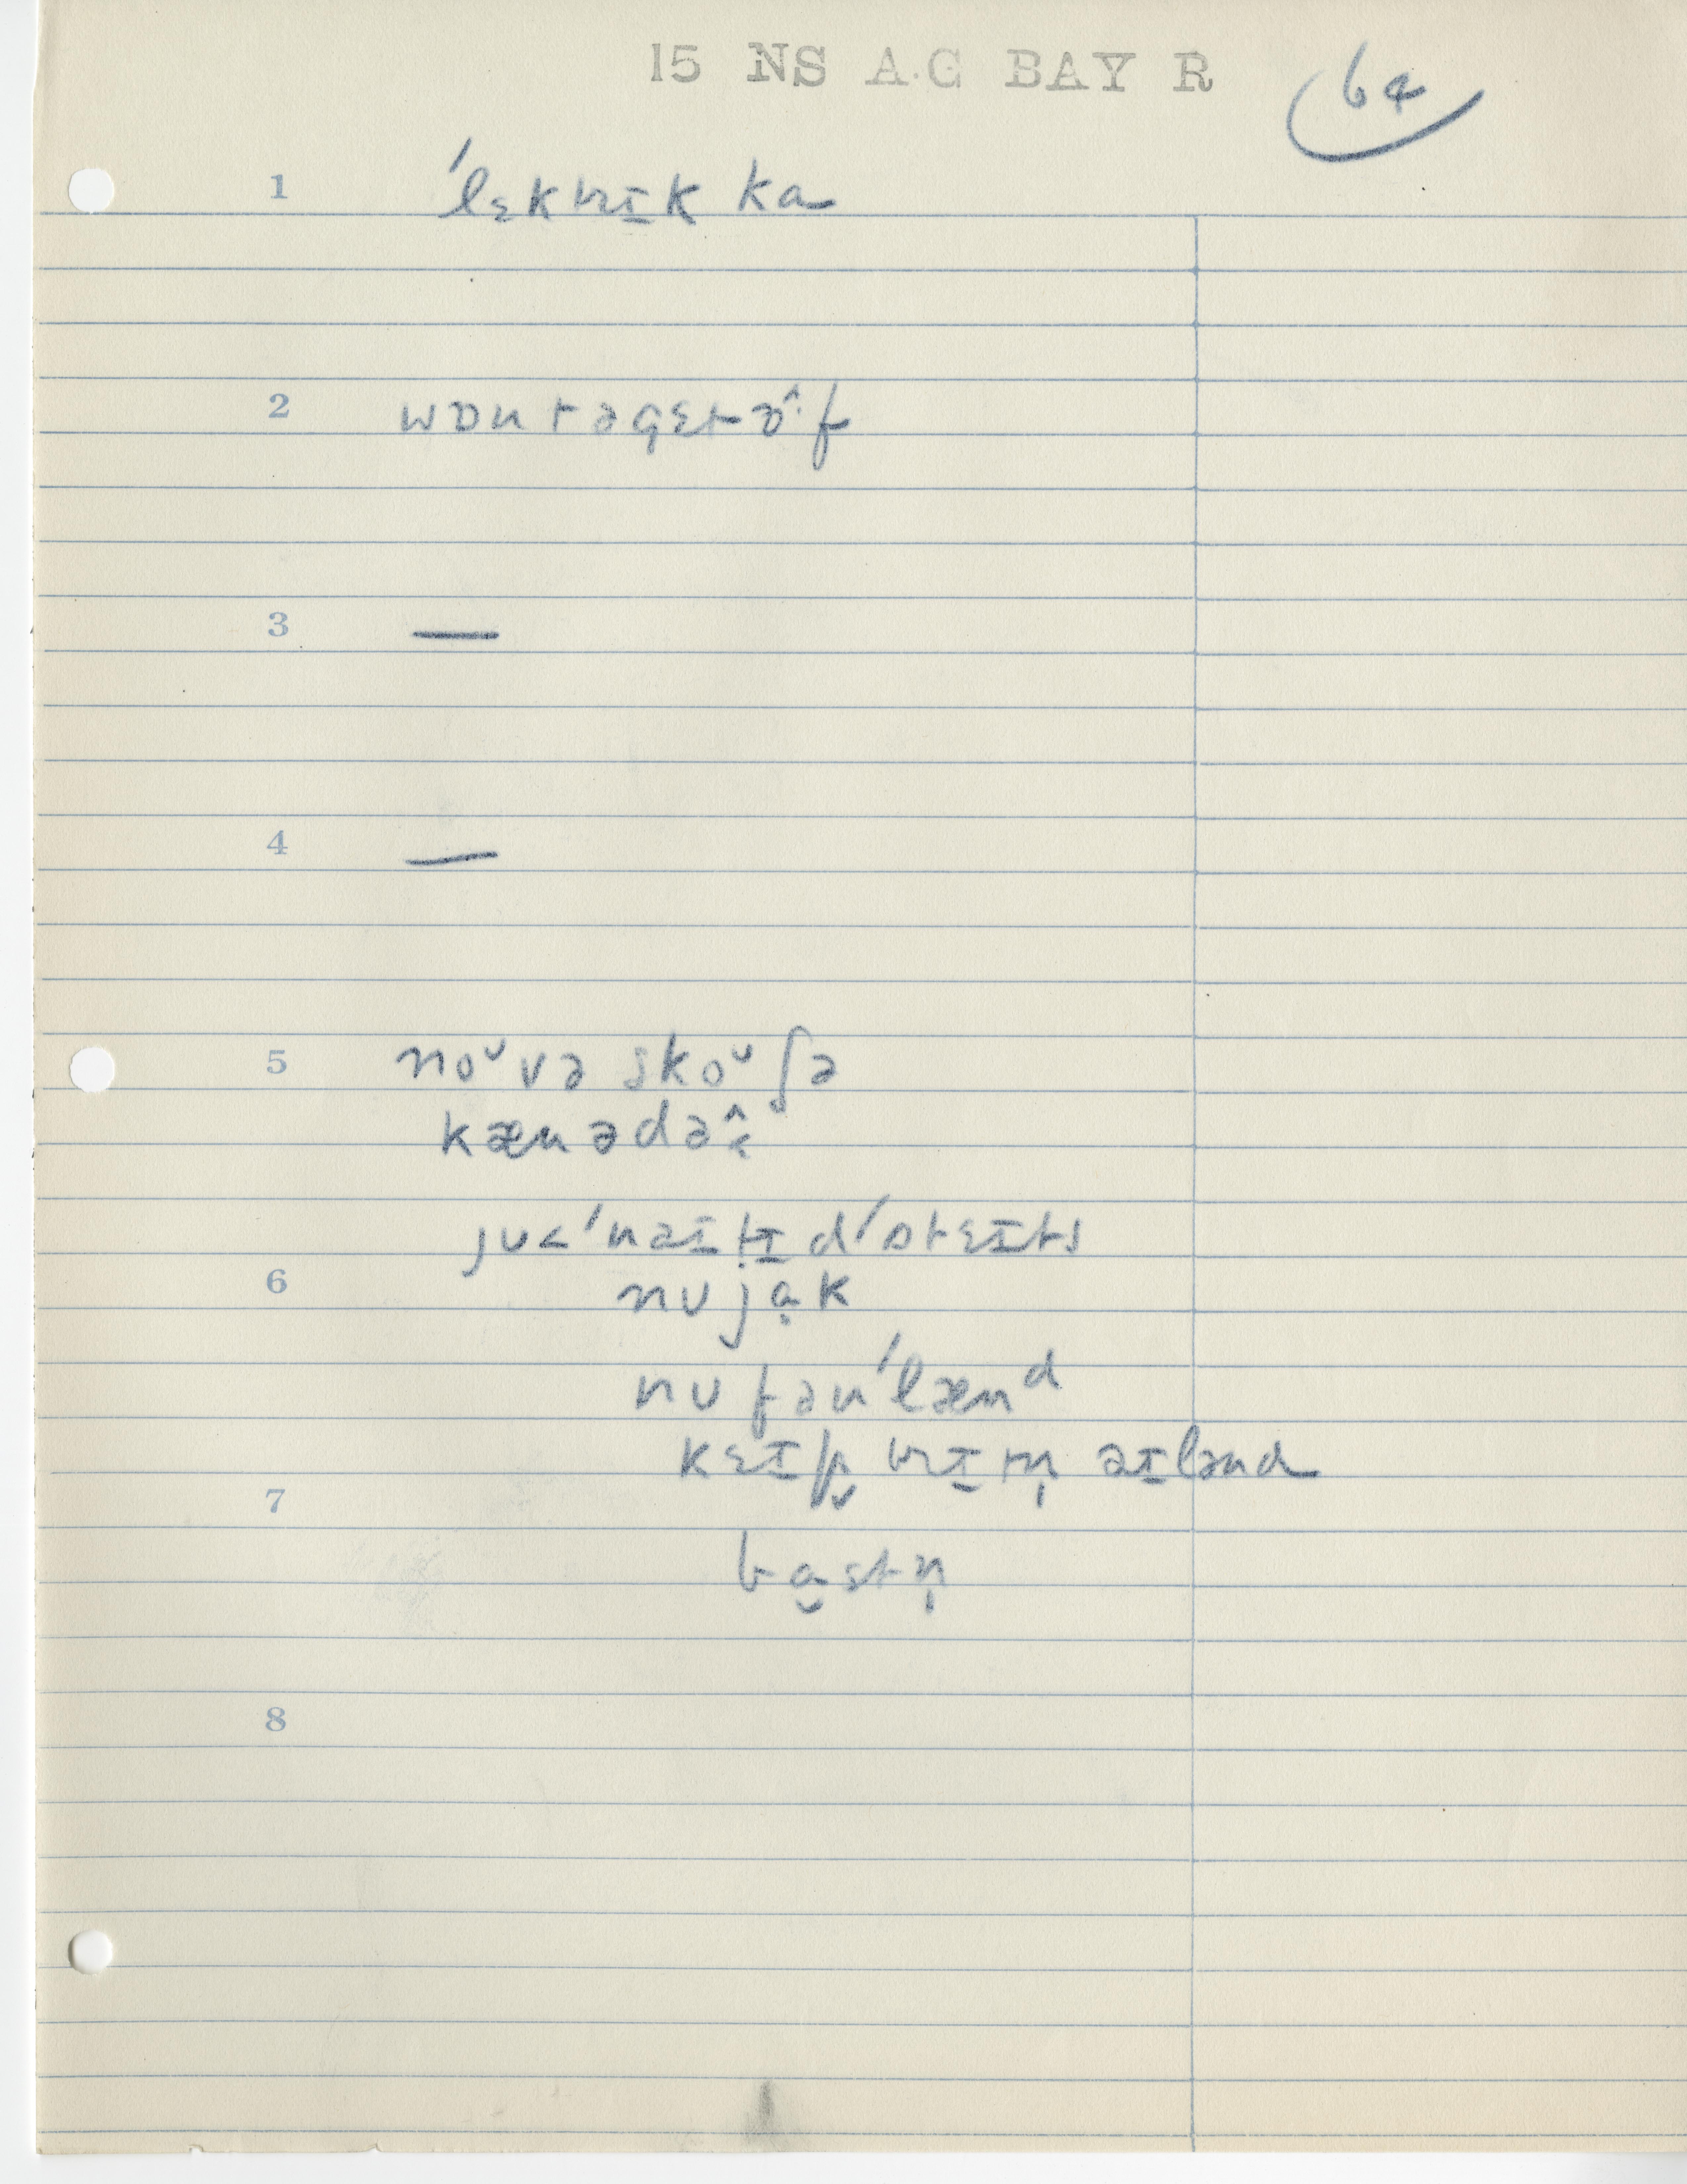 15 NS A.G BAY R 64
1 ˈlɛktrɪk ka
2 wɒn t ə gɛt ɒ̂·f
3 —
4 —
5 noᵛvə skoᵛʃə
kænədə
juˈnaɪtɪdˈsteɪts
6 nu jɑ̣k
nufənˈlænᵈ
kɛɪp brɪtn̩ əɪlənd
7
bɑstn̩
8